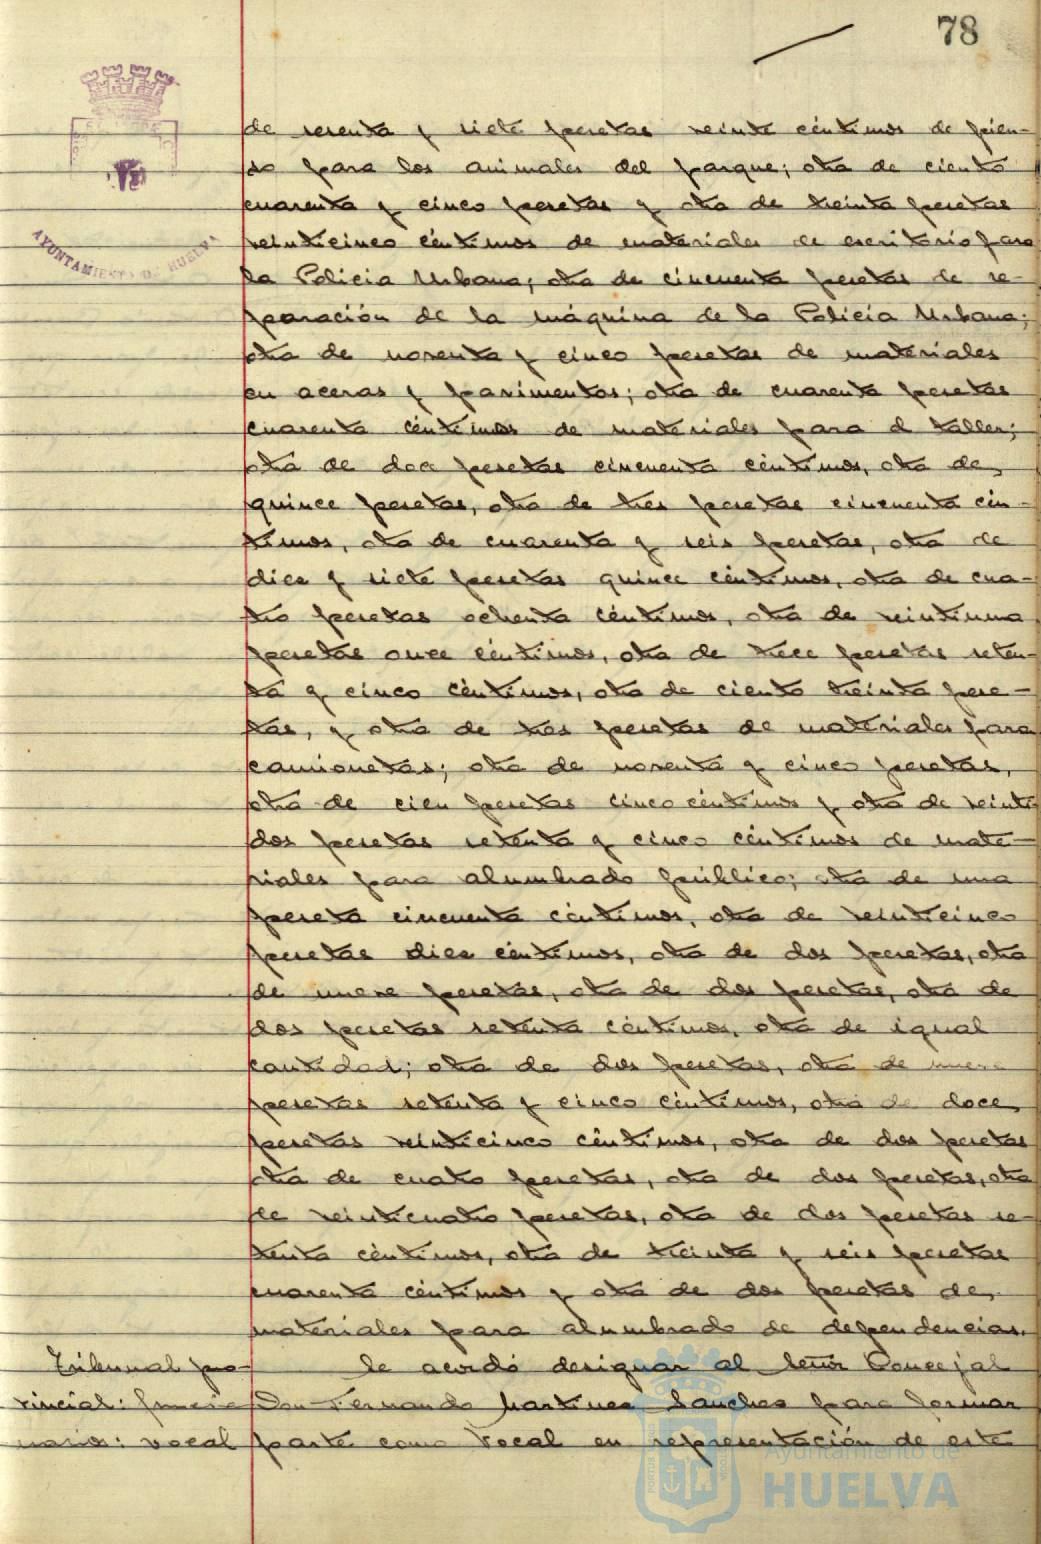 78
AYUNTAMIENTO DE HUELVA
de sesenta y siete pesetas veinte céntimos de pien-
so para los animales del parque; otra de ciento
cuarenta y cinco pesetas y otra de treinta pesetas
veinticinco céntimos de materiales de escritorio para
la Policía Urbana; otra de cincuenta pesetas de re-
paración de la máquina de la Policía Urbana;
otra de noventa y cinco pesetas de materiales
en aceras y pavimentos; otra de cuarenta pesetas
cuarenta céntimos de materiales para el taller;
otra de doce pesetas cincuenta céntimos, otra de
quince pesetas, otra de tres pesetas cincuenta cén-
timos, otra de cuarenta y seis pesetas, otra de
diez y siete pesetas quince céntimos, otra de cua-
tro pesetas ochenta céntimos, otra de veintiuna
pesetas once céntimos, otra de trece pesetas seten-
ta y cinco céntimos, otra de ciento treinta pese-
tas, y otra de tres pesetas de materiales para
camionetas; otra de noventa y cinco pesetas,
otra de cien pesetas cinco céntimos y otra de veinti
dos pesetas setenta y cinco céntimos de mate-
riales para alumbrado público; otra de una
peseta cincuenta céntimos, otra de veinticinco
pesetas diez céntimos, otra de dos pesetas, otra
de nueve pesetas, otra de dos pesetas, otra de
dos pesetas setenta céntimos, otra de igual
cantidad; otra de dos pesetas, otra de nueve
pesetas setenta y cinco céntimos, otra de doce
pesetas veinticinco céntimos, otra de dos pesetas
otra de cuatro pesetas, otra de dos pesetas, otra
de veinticuatro pesetas, otra de dos pesetas se-
tenta céntimos, otra de treinta y seis pesetas
cuarenta céntimos y otra de dos pesetas de
materiales para alumbrado de dependencias.
Tribunal pro-
vincial: funcio
narios: vocal
Se acordó designar al Señor Concejal
Don Fernando Martinez Sanchez para formar
parte como Vocal en representación de este
Ayuntamiento de
HUELVA